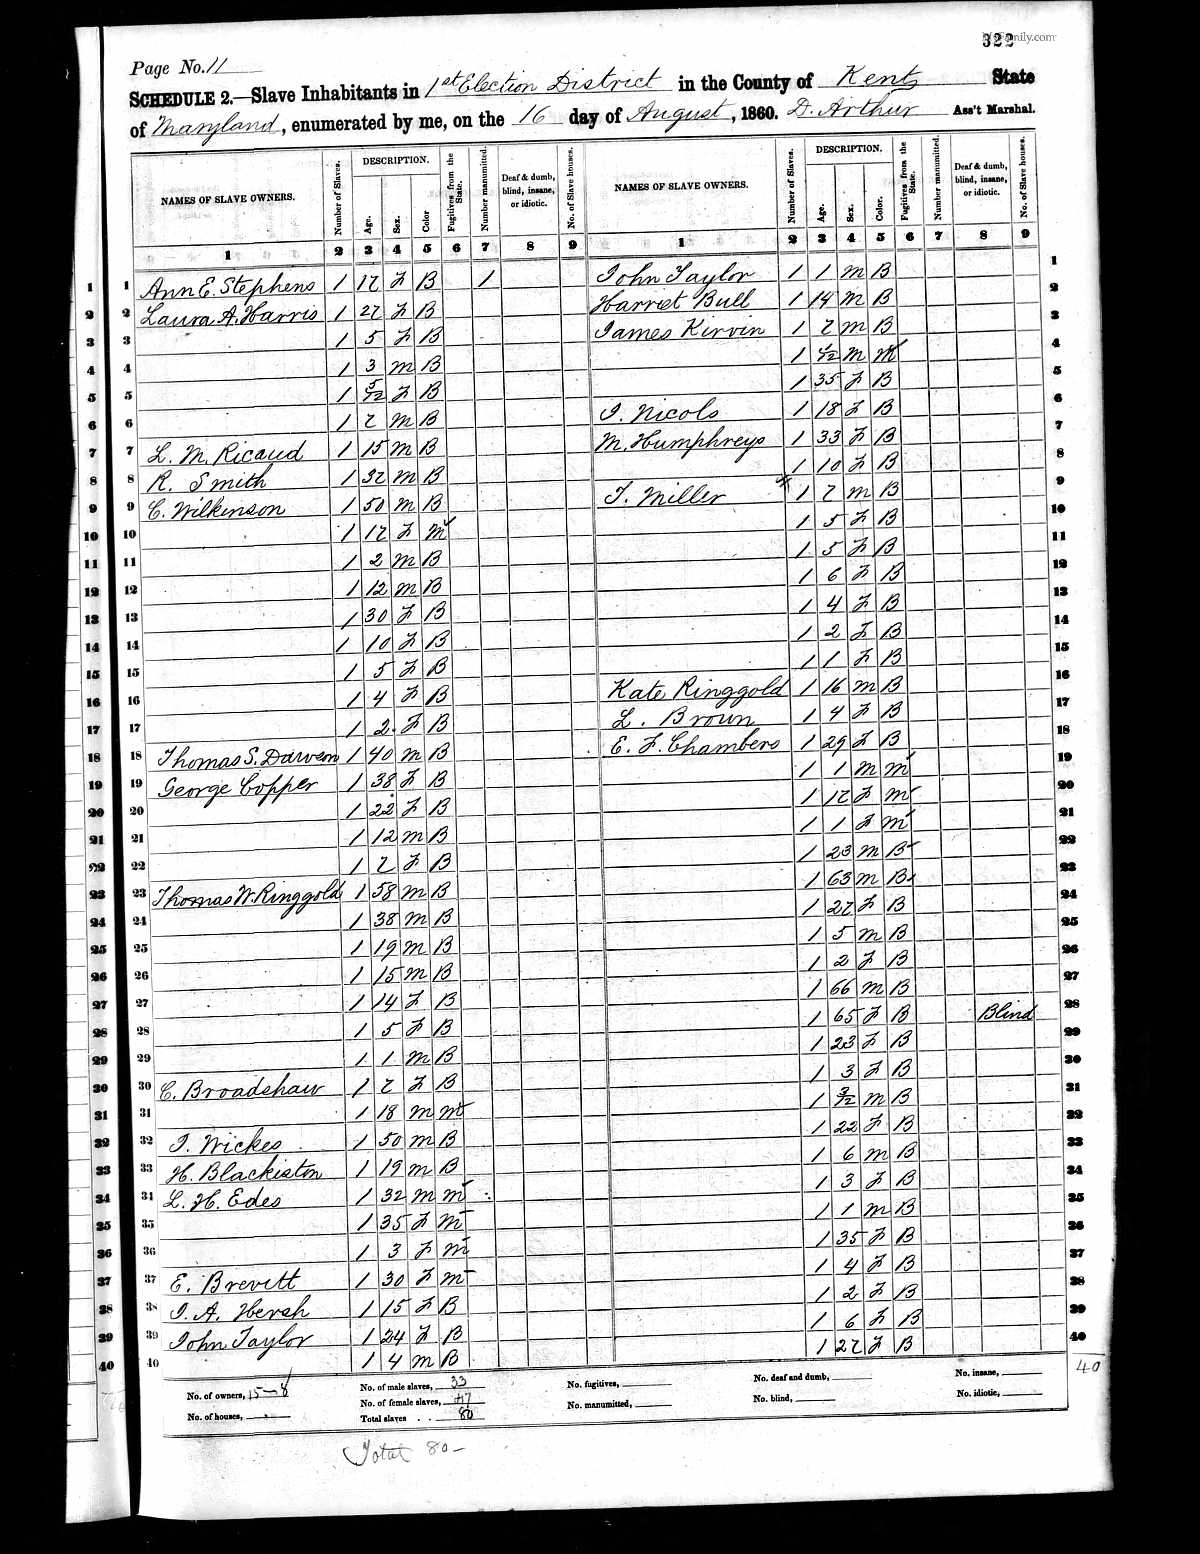 MyFamily.com
322
Page No. 11
SCHEDULE 2.—Slave Inhabitants in 1st Election District in the County of Kent State
of Maryland, enumerated by me, on the 16 day of August, 1860. D. Arthur Ass't Marshal.
NAMES OF SLAVE OWNERS. Number of Slaves. DESCRIPTION. Age. Sex. Color Fugitives from the State. Number manumitted. Deaf & dumb, blind, insane, or idiotic. No. of Slave houses. NAMES OF SLAVE OWNERS. Number of Slaves. DESCRIPTION. Age. Sex. Color. Fugitives from the State. Number manumitted. Deaf & dumb, blind, insane, or idiotic. No. of Slave houses.
1 2 3 4 5 6 7 8 9 1 2 3 4 5 6 7 8 9
1 1 Ann E. Stephens 1 17 F B 1 John Taylor 1 1 M B 1
2 2 Laura A. Harris 1 27 F B Harriet Bull 1 14 M B 2
3 3 1 5 F B James Kirvin 1 7 M B 3
4 4 1 3 M B 1 M M 4
5 5 1 5/12 F B 1 35 F B 5
6 6 1 7 M B J. Nicols 1 18 F B 6
7 7 L. M. Ricaud 1 15 M B M. Humphreys 1 33 F B 7
8 8 R. Smith 1 37 M B 1 10 F B 8
9 9 C. Wilkinson 1 50 M B T. Miller 1 7 M B 9
10 10 1 17 F M 1 5 F B 10
11 11 1 2 M B 1 5 F B 11
12 12 1 12 M B 1 6 F B 12
13 13 1 30 F B 1 4 F B 13
14 14 1 10 F B 1 2 F B 14
15 15 1 5 F B 1 1 F B 15
16 16 1 4 F B Kate Ringgold 1 16 M B 16
17 17 1 2 F B L. Broun 1 4 F B 17
18 18 Thomas S. 1 40 M B E. F. Chambers 1 29 F B 18
19 19 George Copper 1 38 F B 1 1 M M 19
20 20 1 22 F B 1 17 F M 20
21 21 1 12 M B 1 1 F M 21
22 22 1 7 F B 1 23 M B 22
23 23 Thomas W. Ringgold 1 58 M B 1 63 M B 23
24 24 1 38 M B 1 27 F B 24
25 25 1 19 M B 1 5 M B 25
26 26 1 15 M B 1 2 F B 26
27 27 1 14 F B 1 66 M B 27
28 28 1 5 F B 1 65 F B Blind 28
29 29 1 1 M B 1 23 F B 29
30 30 C. Broadshaw 1 7 F B 1 3 F B 30
31 31 1 18 M M 1 3/12 M B 31
32 32 J. Wickes 1 50 M B 1 22 F B 32
33 33 H. Blackiston 1 19 M B 1 6 M B 33
34 34 L. H. Edes 1 32 M M 1 3 F B 34
35 35 1 35 F M 1 1 M B 35
36 36 1 3 F M 1 35 F B 36
37 37 E. Brevitt 1 30 F M 1 4 F B 37
38 38 J. A. Hersh 1 15 F B 1 2 F B 38
39 39 John Taylor 1 24 F B 1 6 F B 39
40 40 1 4 M B 1 27 F B 40
40
No. of owners, 15—8 No. of male slaves, 33 No. fugitives, No. deaf and dumb, No. insane,
No. of houses, No. of female slaves, 47 No. manumitted, No. blind, No. idiotic,
Total slaves 80
Total 80—